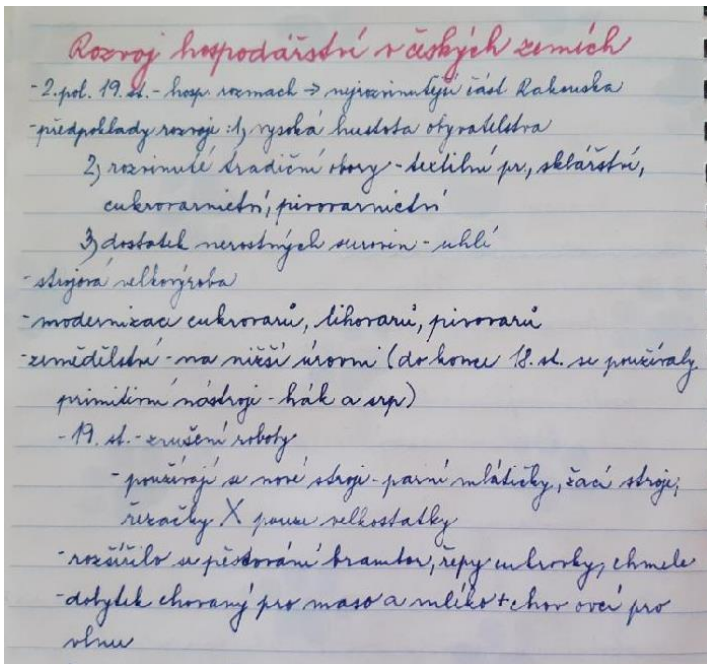 Rozvoj hospodářství v českých zemích
- 2. pol. 19. st. - hosp. rozmach → nejrozvinutější část Rakouska
- předpoklady rozvoje: 1) vysoká hustota obyvatelstva
2) rozvinuté tradiční obory - textilní pr., sklářství,
cukrovarnictví, pivovarnictví
3) dostatek nerostných surovin - uhlí
- strojová velkovýroba
- modernizace cukrovarů, lihovarů, pivovarů
- zemědělství - na nižší úrovni (do konce 18. st. se používaly
primitivní nástroje - hák a srp)
- 19. st. - zrušení roboty
- používají se nové stroje - parní mlátičky, žací stroje,
řezačky X pouze velkostatky
- rozšířilo se pěstování brambor, řepy cukrovky, chmele
- dobytek chovaný pro maso a mléko + chov ovcí pro
vlnu